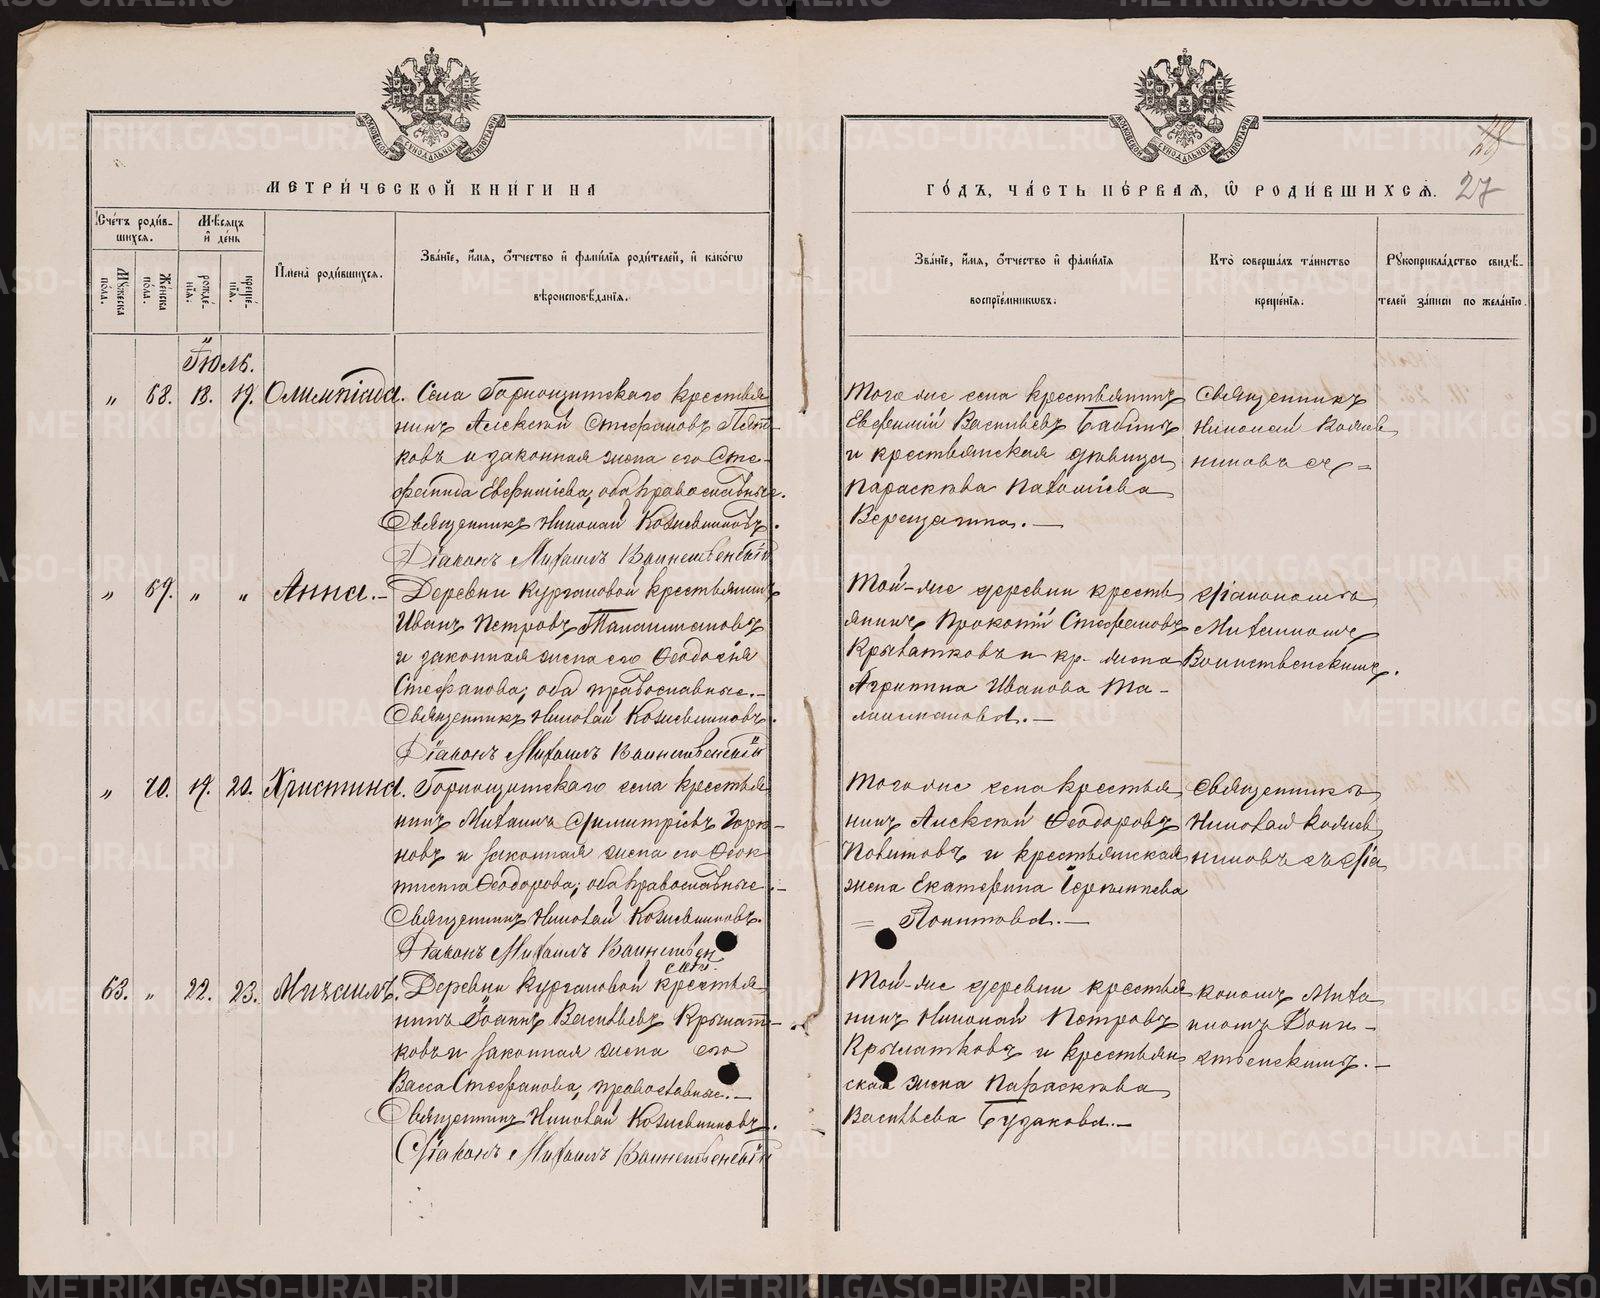 МЕТРИ́ЧЕСКОЙ КНИ́ГИ НА
ГО́ДЪ, ЧА́СТЬ ПЕ́РВАЯ, Ѽ РОДИ́ВШИХСѦ.
28
27
Сче́тъ роди́в-
шихсѧ.
Мѣ́сѧцъ
и҆ де́нь
Му́жеска
по́ла.
Же́нска
по́ла.
рожде́-
нїѧ.
креще́-
нїѧ.
И҆мена̀ роди́вшихсѧ.
Зва́нїе, и҆́мѧ, ѻ҆́тчество и҆ фами́лїѧ роди́телей, и҆ како́гѡ
вѣроисповѣ́данїѧ.
Зва́нїе, и҆́мѧ, ѻ҆́тчество и҆ фами́лїѧ
воспрїе́мникѡвъ.
Кто̀ соверша́лъ та́инство
креще́нїѧ.
Рꙋкоприкла́дство свидѣ́-
телей за́писи по жела́нїю.
Іюль.
„ 68. 18. 19. Олимпіада.
Села Горнощитскаго крестья
нинъ Алексѣй Стефановъ Пят-
ковъ и законная жена его Сте-
фанида Евфиміева, оба православные.
Священникъ Николай Кожевниковъ.
Діаконъ Михаилъ Воинственскій
Того же села крестьянинъ
Евфимій Васильевъ Бабинъ
и крестьянская дѣвица
Параскева
Верещагина.—
Священникъ
Николай Кожев
никовъ съ
„ 69. „ „ Анна.—
Деревни Кургановой крестьянинъ
Иванъ Петровъ Талашмановъ
и законная жена его Ѳеодосія
Стефанова, оба православные.—
Священникъ Николай Кожевниковъ.
Діаконъ Михаилъ Воинственскій
Той-же деревни кресть
янинъ Прокопій Стефановъ
Крылатковъ и кр. жена
Агрипина Иванова Та-
лашманова.—
діакономъ
Михаиломъ
Воинственскимъ.
„ 70. 19. 20. Христина.
Горнощитскаго села крестья
нинъ Михаилъ Димитріевъ
новъ и законная жена его Ѳеок-
тиста Ѳеодорова, оба православные.—
Священникъ Николай Кожевниковъ.
Діаконъ Михаилъ Воинствен
скій.
Того же села крестья
нинъ Алексѣй Ѳеодоровъ
и крестьянская
жена Екатерина
Священникъ
Николай Кожев
никовъ съ діа
63. „ 22. 23. Михаилъ.
Деревни Кургановой крестья-
нинъ Іоаннъ Васильевъ Крылат-
ковъ и законная жена его
Васса Стефанова, православные.—
Священникъ Николай Кожевниковъ.
Діаконъ Михаилъ Воинственскій
Той-же деревни крестья
нинъ Николай Петровъ
Крылатковъ и крестьян
ская жена Параскева
Васильева Бузакова.—
кономъ Миха
иломъ Воин-
ственскимъ.—